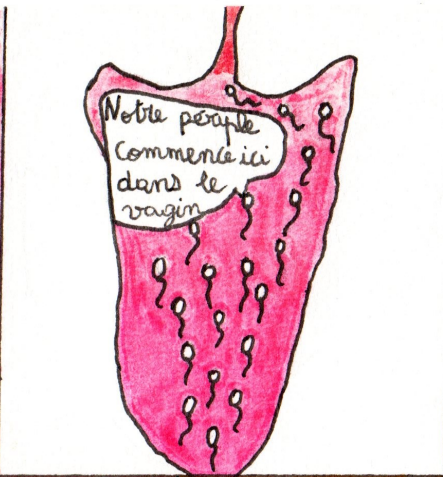 Notre périple
commence ici
dans le
vagin